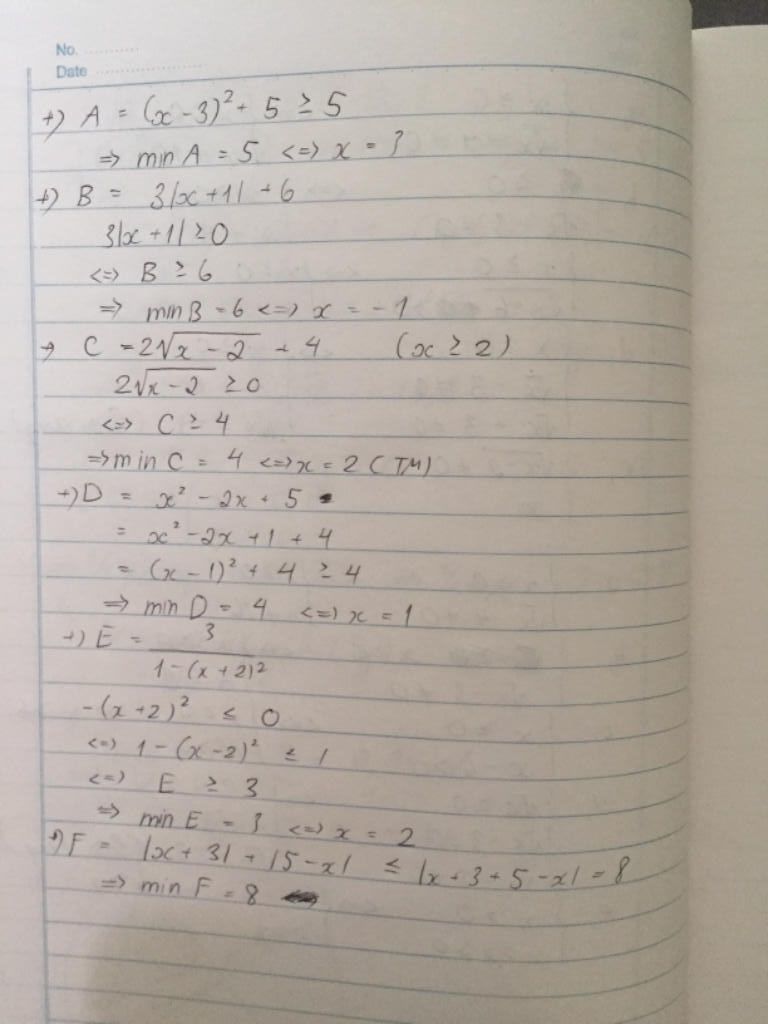 No.
Date
+) A = (x - 3)² + 5 ≥ 5
=> min A = 5 <=> x = 3
+) B = 3|x + 1| + 6
3|x + 1| ≥ 0
<=> B ≥ 6
=> min B = 6 <=> x = -1
+) C = 2√(x - 2) + 4 (x ≥ 2)
2√(x - 2) ≥ 0
<=> C ≥ 4
=> min C = 4 <=> x = 2 (TM)
+) D = x² - 2x + 5
= x² - 2x + 1 + 4
= (x - 1)² + 4 ≥ 4
=> min D = 4 <=> x = 1
+) E = 3 / (1 - (x + 2)²)
-(x + 2)² ≤ 0
<=> 1 - (x - 2)² ≤ 1
<=> E ≥ 3
=> min E = 3 <=> x = 2
+) F = |x + 3| + |5 - x| ≤ |x + 3 + 5 - x| = 8
=> min F = 8